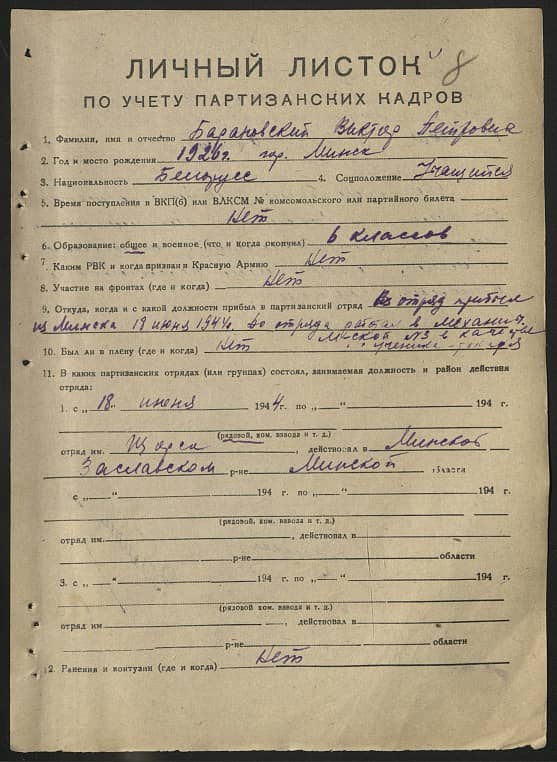 8
ЛИЧНЫЙ ЛИСТОК
ПО УЧЕТУ ПАРТИЗАНСКИХ КАДРОВ
1. Фамилия, имя и отчество Барановский Виктор Петрович
2. Год и место рождения 1926г. гор. Минск
3. Национальность Белорусс 4. Соцположение Учащийся
5. Время поступления в ВКП(б) или ВЛКСМ № комсомольского или партийного билета
Нет
6. Образование: общее и военное (что и когда окончил) 6 классов
7. Каким РВК и когда призван в Красную Армию Нет
8. Участие на фронтах (где и когда) Нет
9. Откуда, когда и с какой должности прибыл в партизанский отряд В отряд прибыл
из Минска 18 июня 1944г. До отряда работал в механич.
№3 в качестве
10. Был ли в плену (где и когда) Нет ученика токаря
11. В каких партизанских отрядах (или группах) состоял, занимаемая должность и район действия
отряда:
1. с „18" июня 1944г. по „—" 194 г.
(рядовой, ком. взвода и т. д.)
отряд им. , действовал в Минской
Заславском р-не Минской области
с „—" 194 г. по „—" 194 г.
(рядовой, ком. взвода и т. д.)
отряд им. , действовал в
р-не области
3. с „—" 194 г. по „—" 194 г.
(рядовой, ком. взвода и т. д.)
отряд им. , действовал в
р-не области
12. Ранения и контузии (где и когда) Нет